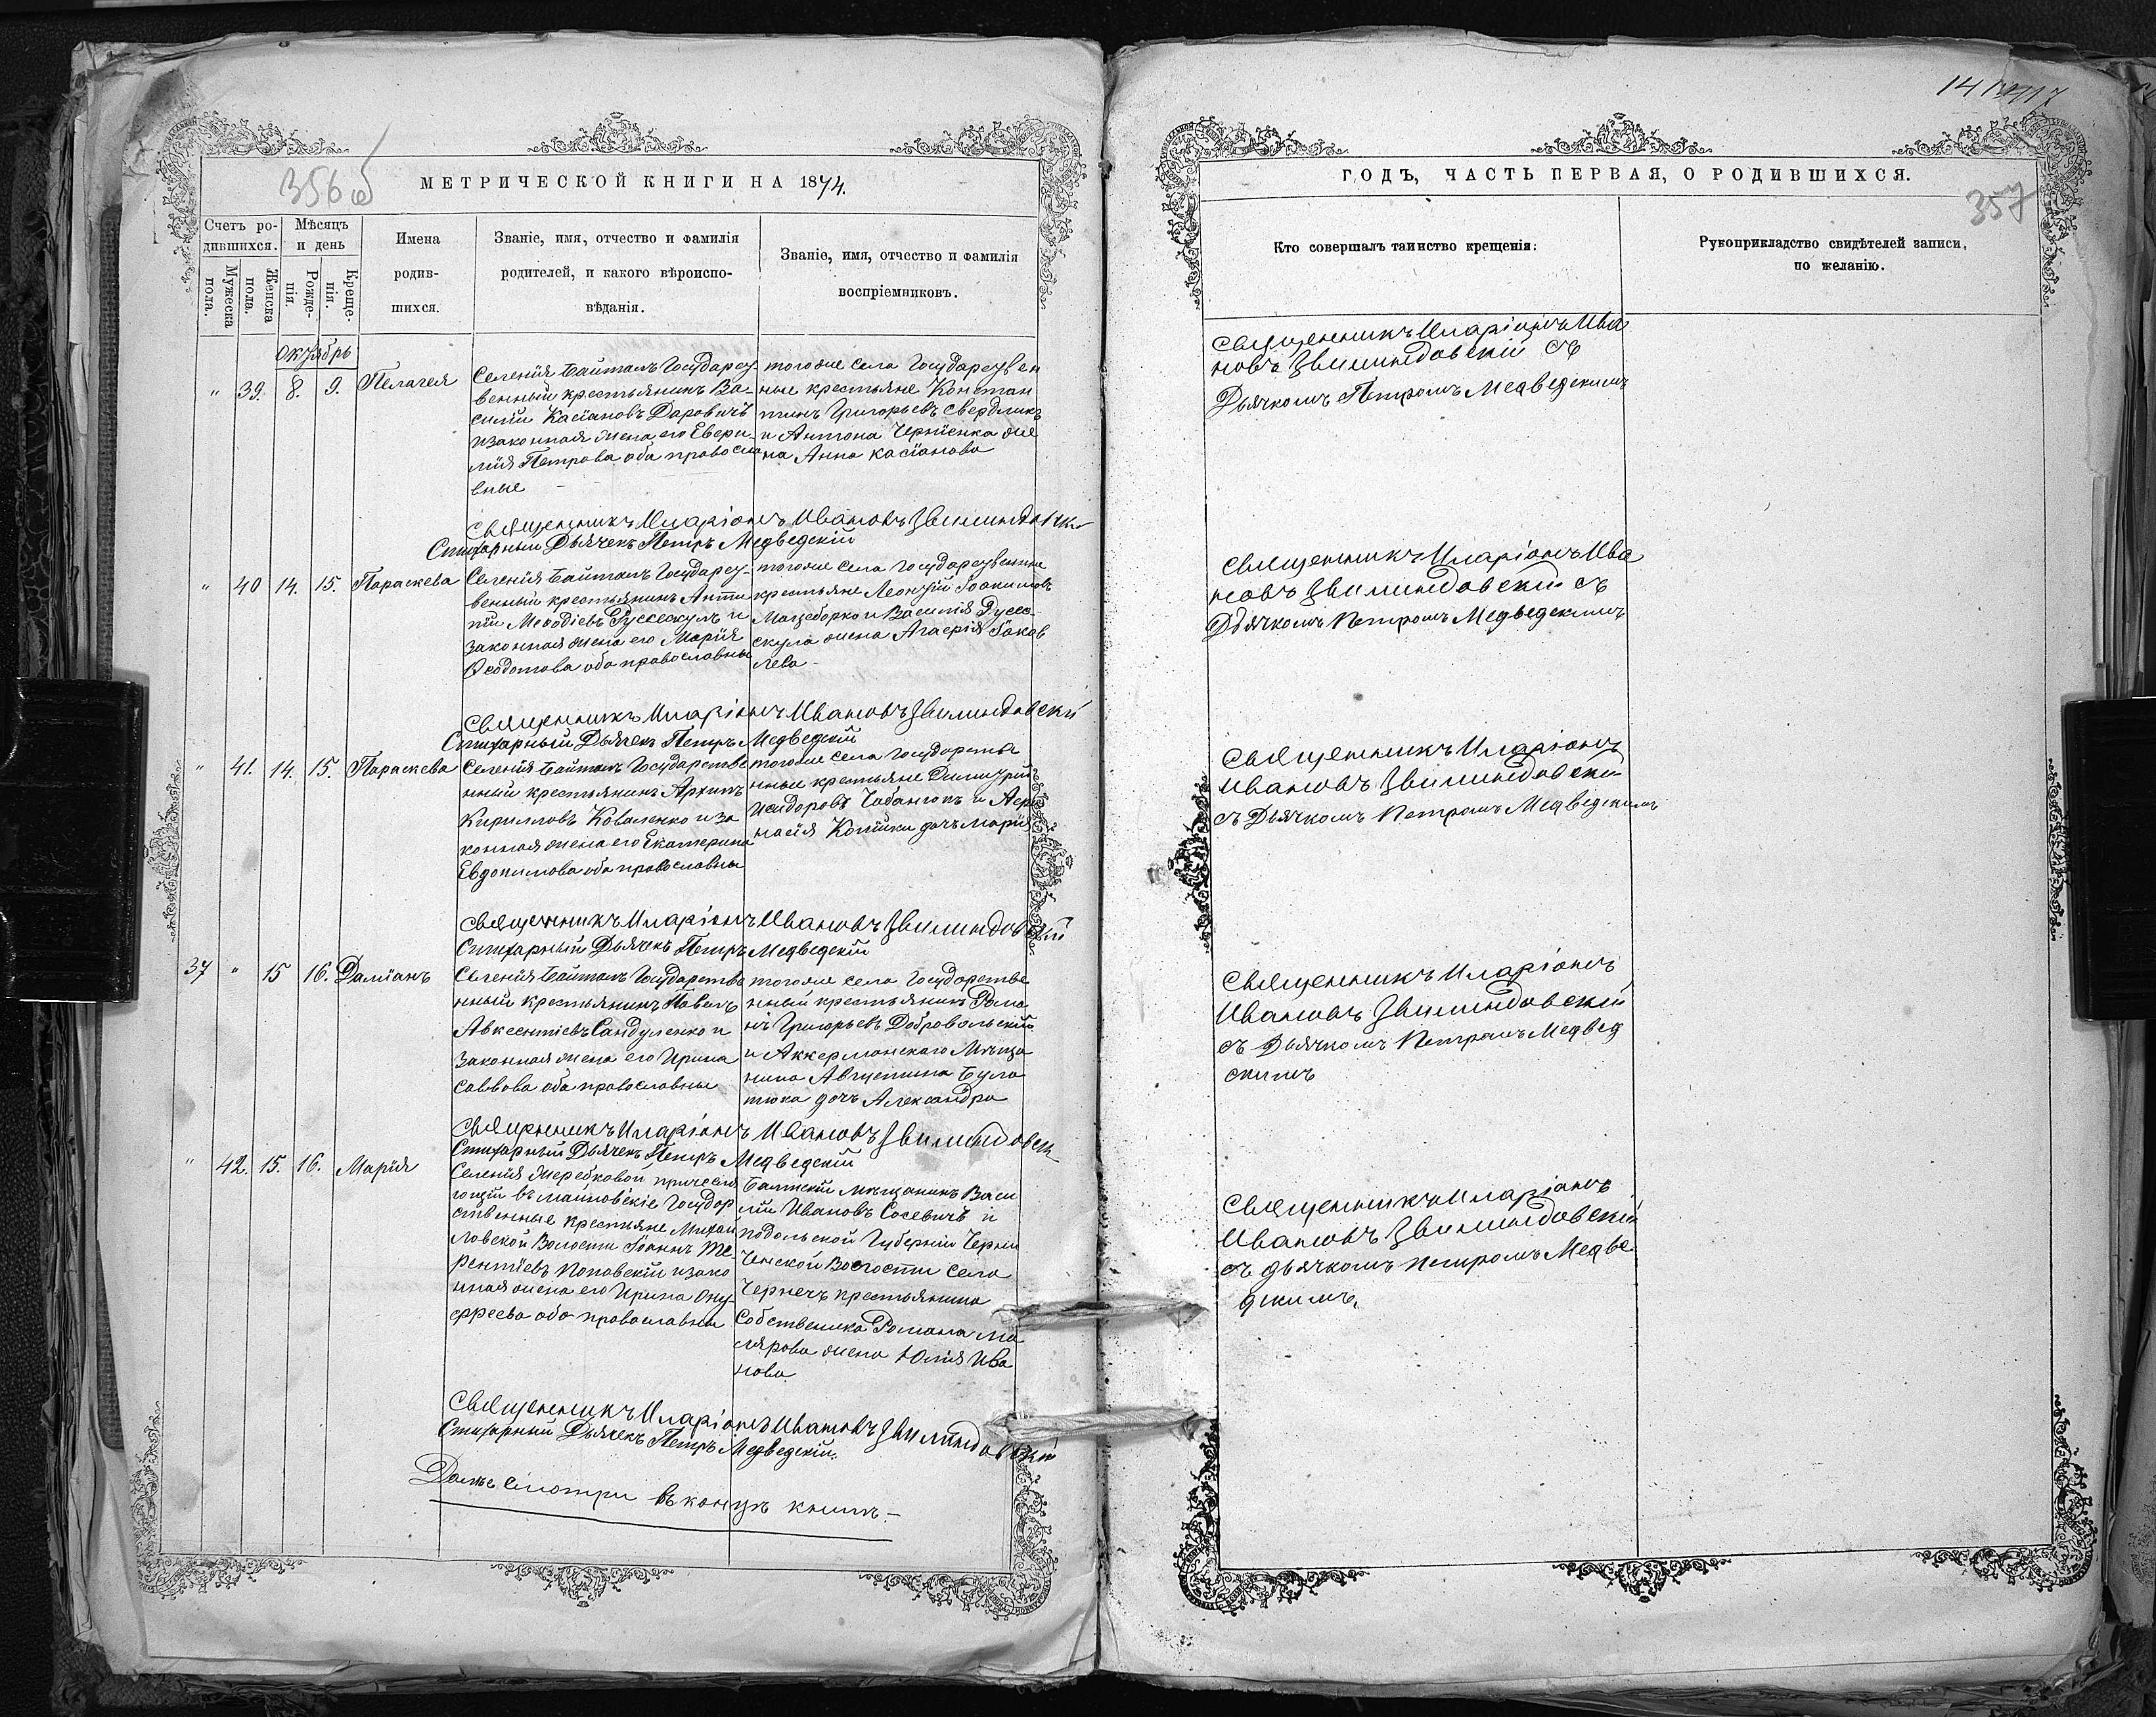 356 об
МЕТРИЧЕСКОЙ КНИГИ НА 1874.
Счетъ ро-
дившихся.
Мѣсяцъ
и день
Мужеска
пола.
Женска
пола.
Рожде-
нія.
Креще-
нія.
Имена
родив-
шихся.
Званіе, имя, отчество и фамилія
родителей, и какого вѣроиспо-
вѣданія.
Званіе, имя, отчество и фамилія
воспріемниковъ.
Октябрь
" 39. 8. 9. Пелагея
Селенія Байталъ Государст
венный крестьянинъ Ва-
силій Касіановъ Даровичъ
и законная жена его Евфи-
мія Петрова оба правосла
вные
тогоже села Государствен
ные крестьяне Констан
тинъ Григорьевъ Свердликъ
и Антона Чернѣенка же
на Анна Касіанова
Священникъ Иларіонъ Ивановъ Звилиндовски
Стихарный Дьячекъ Петръ Медведскій
" 40 14. 15. Параскева
Селенія Байталъ Государст-
венный крестьянинъ Анти
пій Меѳодіевъ Русскулъ и
законная жена его Марія
Ѳеодотова оба православны
тогоже села Государственные
крестьяне Леонтій Іоакимовъ
Мацеборко и Василія Русс-
скула жена Агафія Іаков
лева -
Священникъ Иларіонъ Ивановъ Звилиндовскій
Стихарный Дьячекъ Петръ Медведскій
" 41. 14. 15. Параскева
Селенія Байталъ Государстве
нный крестьянинъ Архипъ
Кирилловъ Коваленко и за
конная жена его Екатерина
Евдокимова оба православны
тогоже села Государстве
нные крестьяне Димитрій
Исидоровъ Чабанюкъ и Аѳа
насія Копійки дочь Марія
Священникъ Иларіонъ Ивановъ Звилиндовскій
Стихарный Дьячекъ Петръ Медведскій
37 " 15 16. Даміанъ
Селенія Байталъ Государстве
нный крестьянинъ Павелъ
Авксентіевъ Сандуленко и
законная жена его Ирина
Саввова оба православны
тогоже села Государстве
нный крестьянинъ Рома
нъ Григорьевъ Добровольскій
и Аккерманскаго Мѣща
нина Августина Була
тюка дочь Александра
Священникъ Иларіонъ Ивановъ Звилиндовск
Стихарный Дьячекъ Петръ Медведскій
" 42. 15. 16. Марія
Селенія Жеребковой причесля
ющій въ Государ
ственные крестьяне Михаи
ловской Волости Іоаннъ Те-
рентіевъ Поповскій и зако
нная жена его Ирина Ону-
фреева оба православны
Балтскій мѣщанинъ Васи
лій Ивановъ Сосевичъ и
Подольской Губерніи Черни
ченской Волости села
Чернечъ крестьянина
Собственика Романа Ма
лярова жена Юлія Ива
нова
Священникъ Иларіонъ Ивановъ Звилиндовскій
Стихарный Дьячекъ Петръ Медведскій.
Далѣе Смотри въ концѣ книги.-
357
ГОДЪ, ЧАСТЬ ПЕРВАЯ, О РОДИВШИХСЯ.
Кто совершалъ таинство крещенія:
Рукоприкладство свидѣтелей записи,
по желанію.
Священникъ Иларіонъ Ива
новъ Звилиндовскій съ
Дьячкомъ Петромъ Медведскимъ
Священникъ Иларіонъ Ива
новъ Звилиндовскій съ
Дьячкомъ Петромъ Медведскимъ
Священникъ Иларіонъ
Ивановъ Звилиндовскій
съ Дьячкомъ Петромъ Медведскимъ
Священникъ Иларіонъ
Ивановъ Звилиндовскій
съ Дьячкомъ Петромъ Медвед
скимъ
Священникъ Иларіонъ
Ивановъ Звилиндовскій
съ дьячкомъ Петромъ Медве
дскимъ,